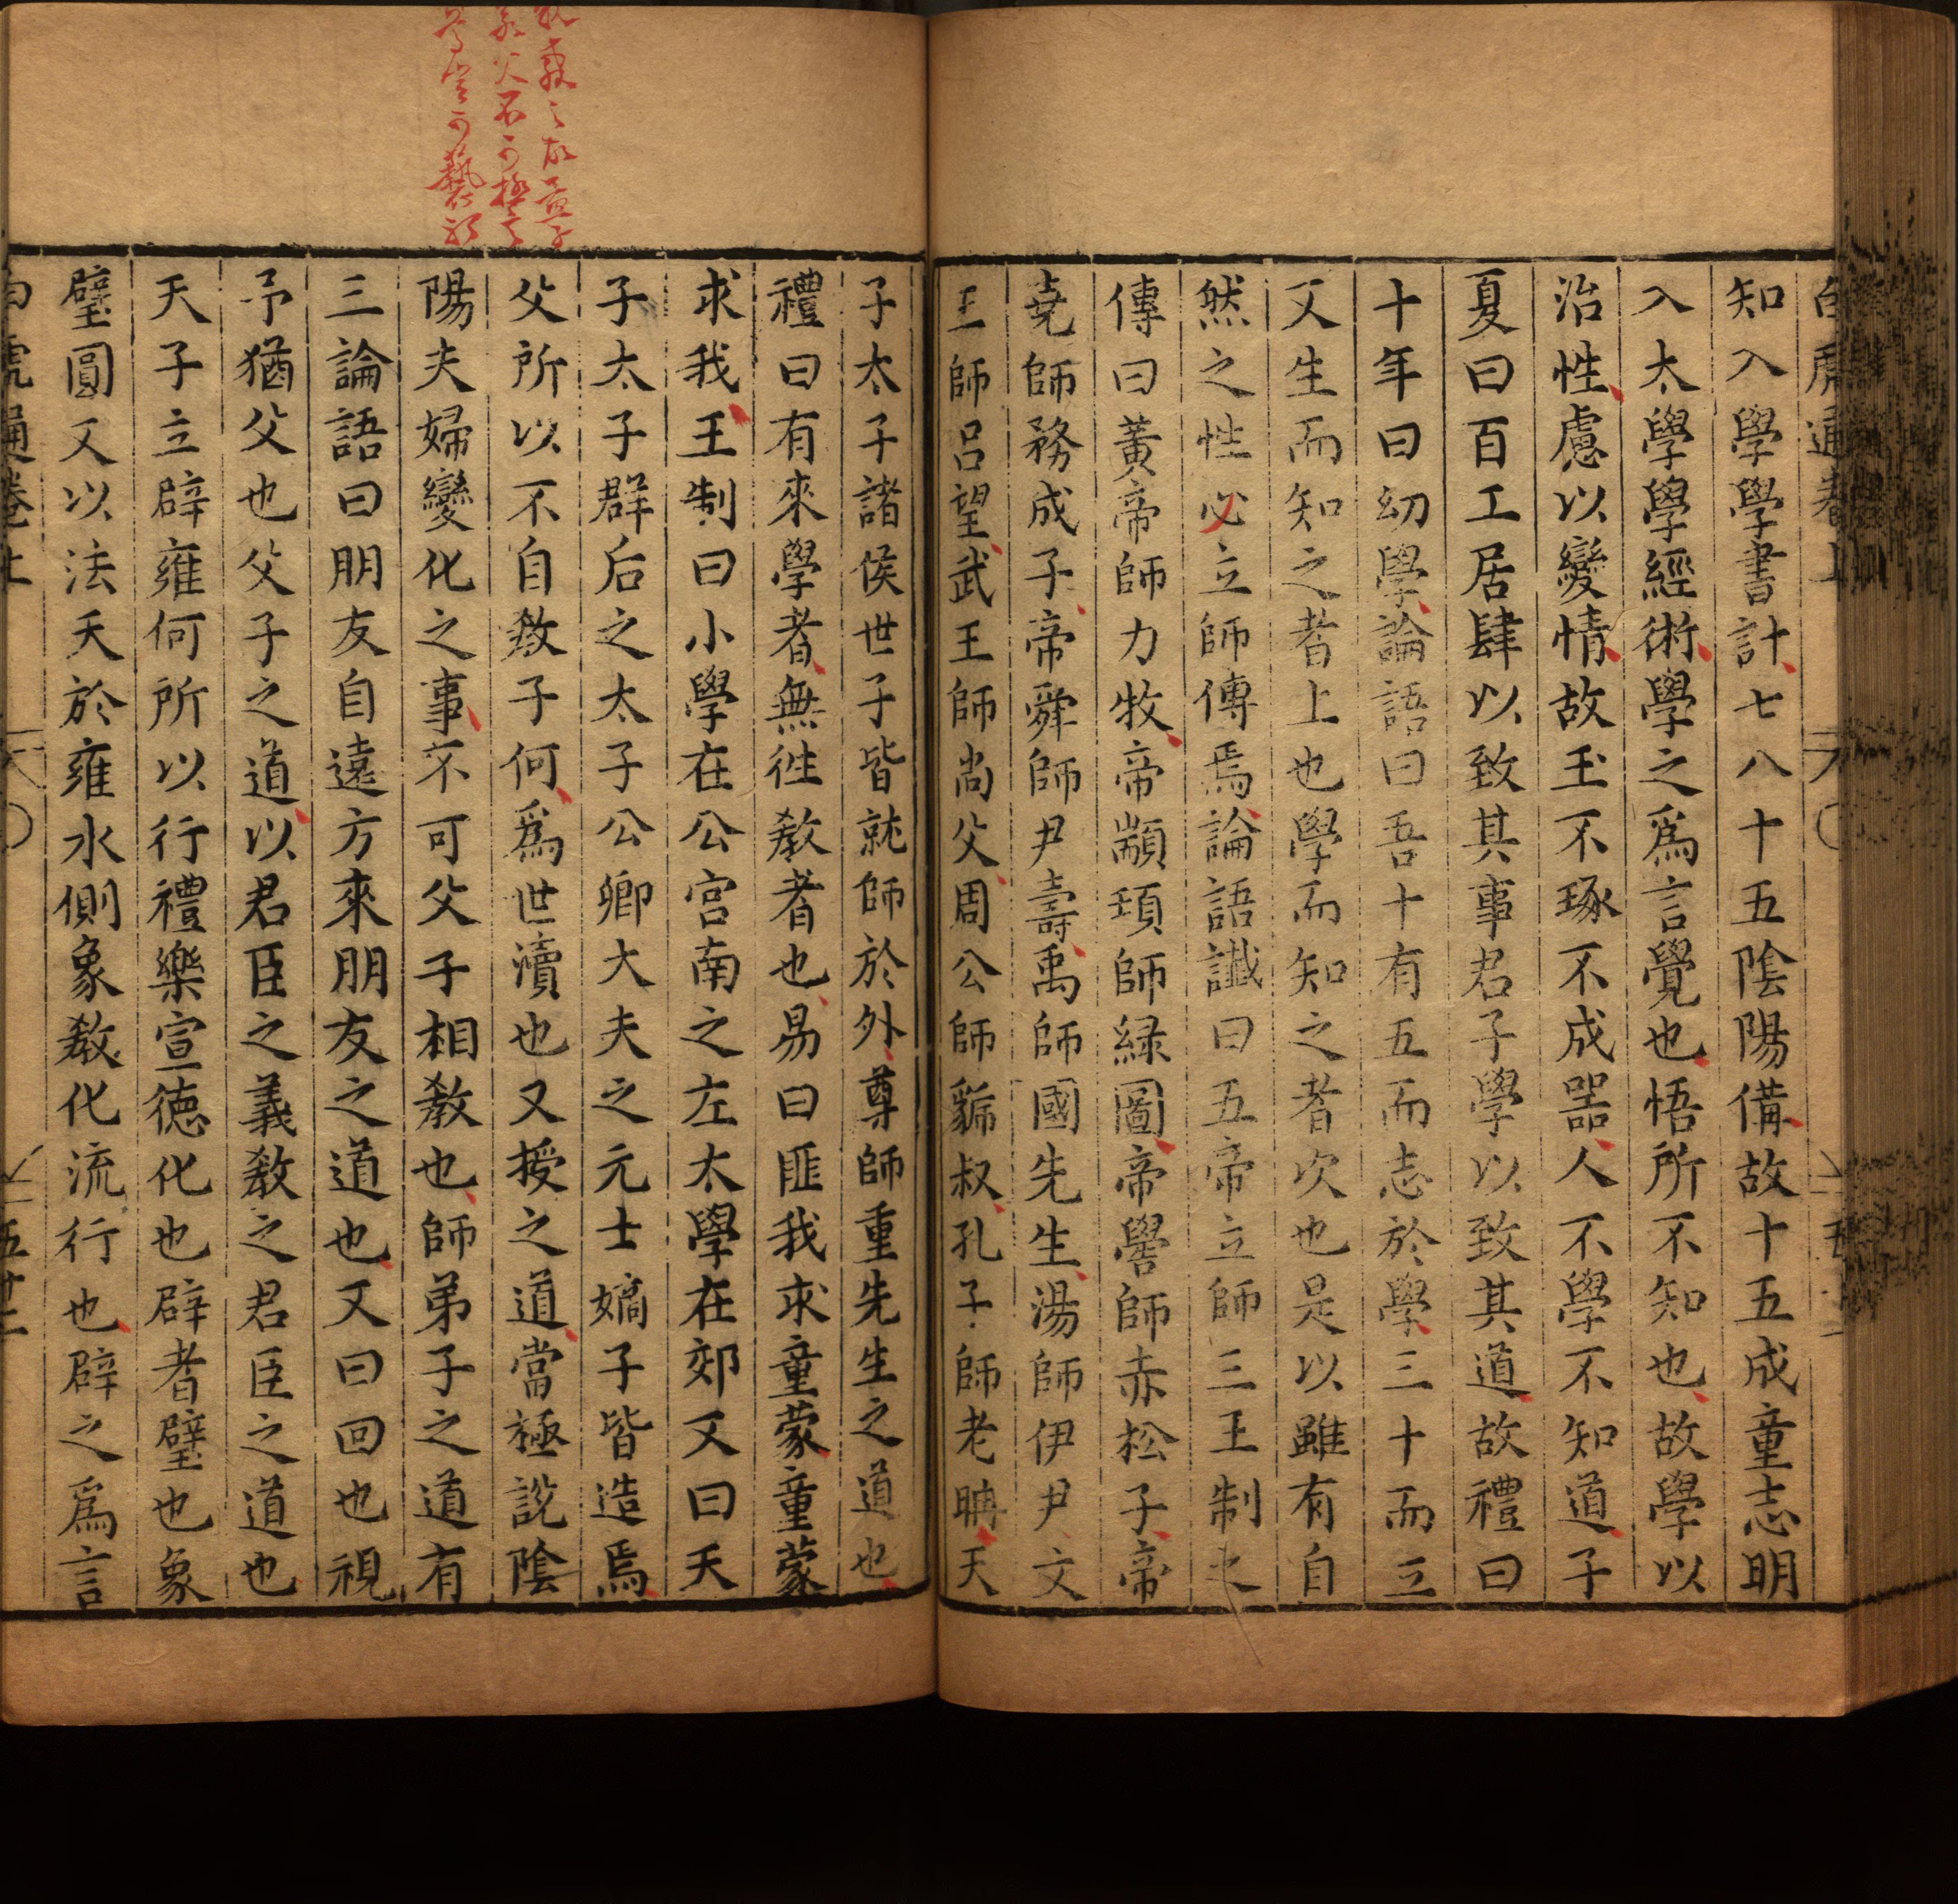 知入學學書計七八十五陰陽備故十五成童志明
入太學學經術學之爲言覺也悟所不知也故學以
治性慮以變情故玉不琢不成噐人不學不知道子
夏曰百工居肆以致其事君子學以致其道故禮曰
十年曰幼學論語曰吾十有五而志於學三十而立
又生而知之者上也學而知之者次也是以雖有自
然之性必立師傳焉論語讖曰五帝立師三王制之
傳曰黃帝師力牧帝顓頊師緑圖帝嚳師赤松子帝
堯師務成子帝舜師尹壽禹師國先生湯師伊尹文
王師呂望武王師尚父周公師虢叔孔子師老聃天
子太子諸侯世子皆就師於外尊師重先生之道也
禮曰有來學者無徃教者也易曰匪我求童蒙童蒙
求我王制曰小學在公宮南之左太學在郊又曰天
子太子群后之太子公卿大夫之元士嫡子皆造焉
父所以不自教子何爲世瀆也又授之道當極說陰
陽夫婦變化之事不可父子相教也師弟子之道有
三論語曰朋友自遠方來朋友之道也又曰回也視
予猶父也父子之道以君臣之義教之君臣之道也
天子立辟雍何所以行禮樂宣德化也辟者璧也象
璧圓又以法天於雍水側象教化流行也辟之爲言
白虎通卷上
五十二